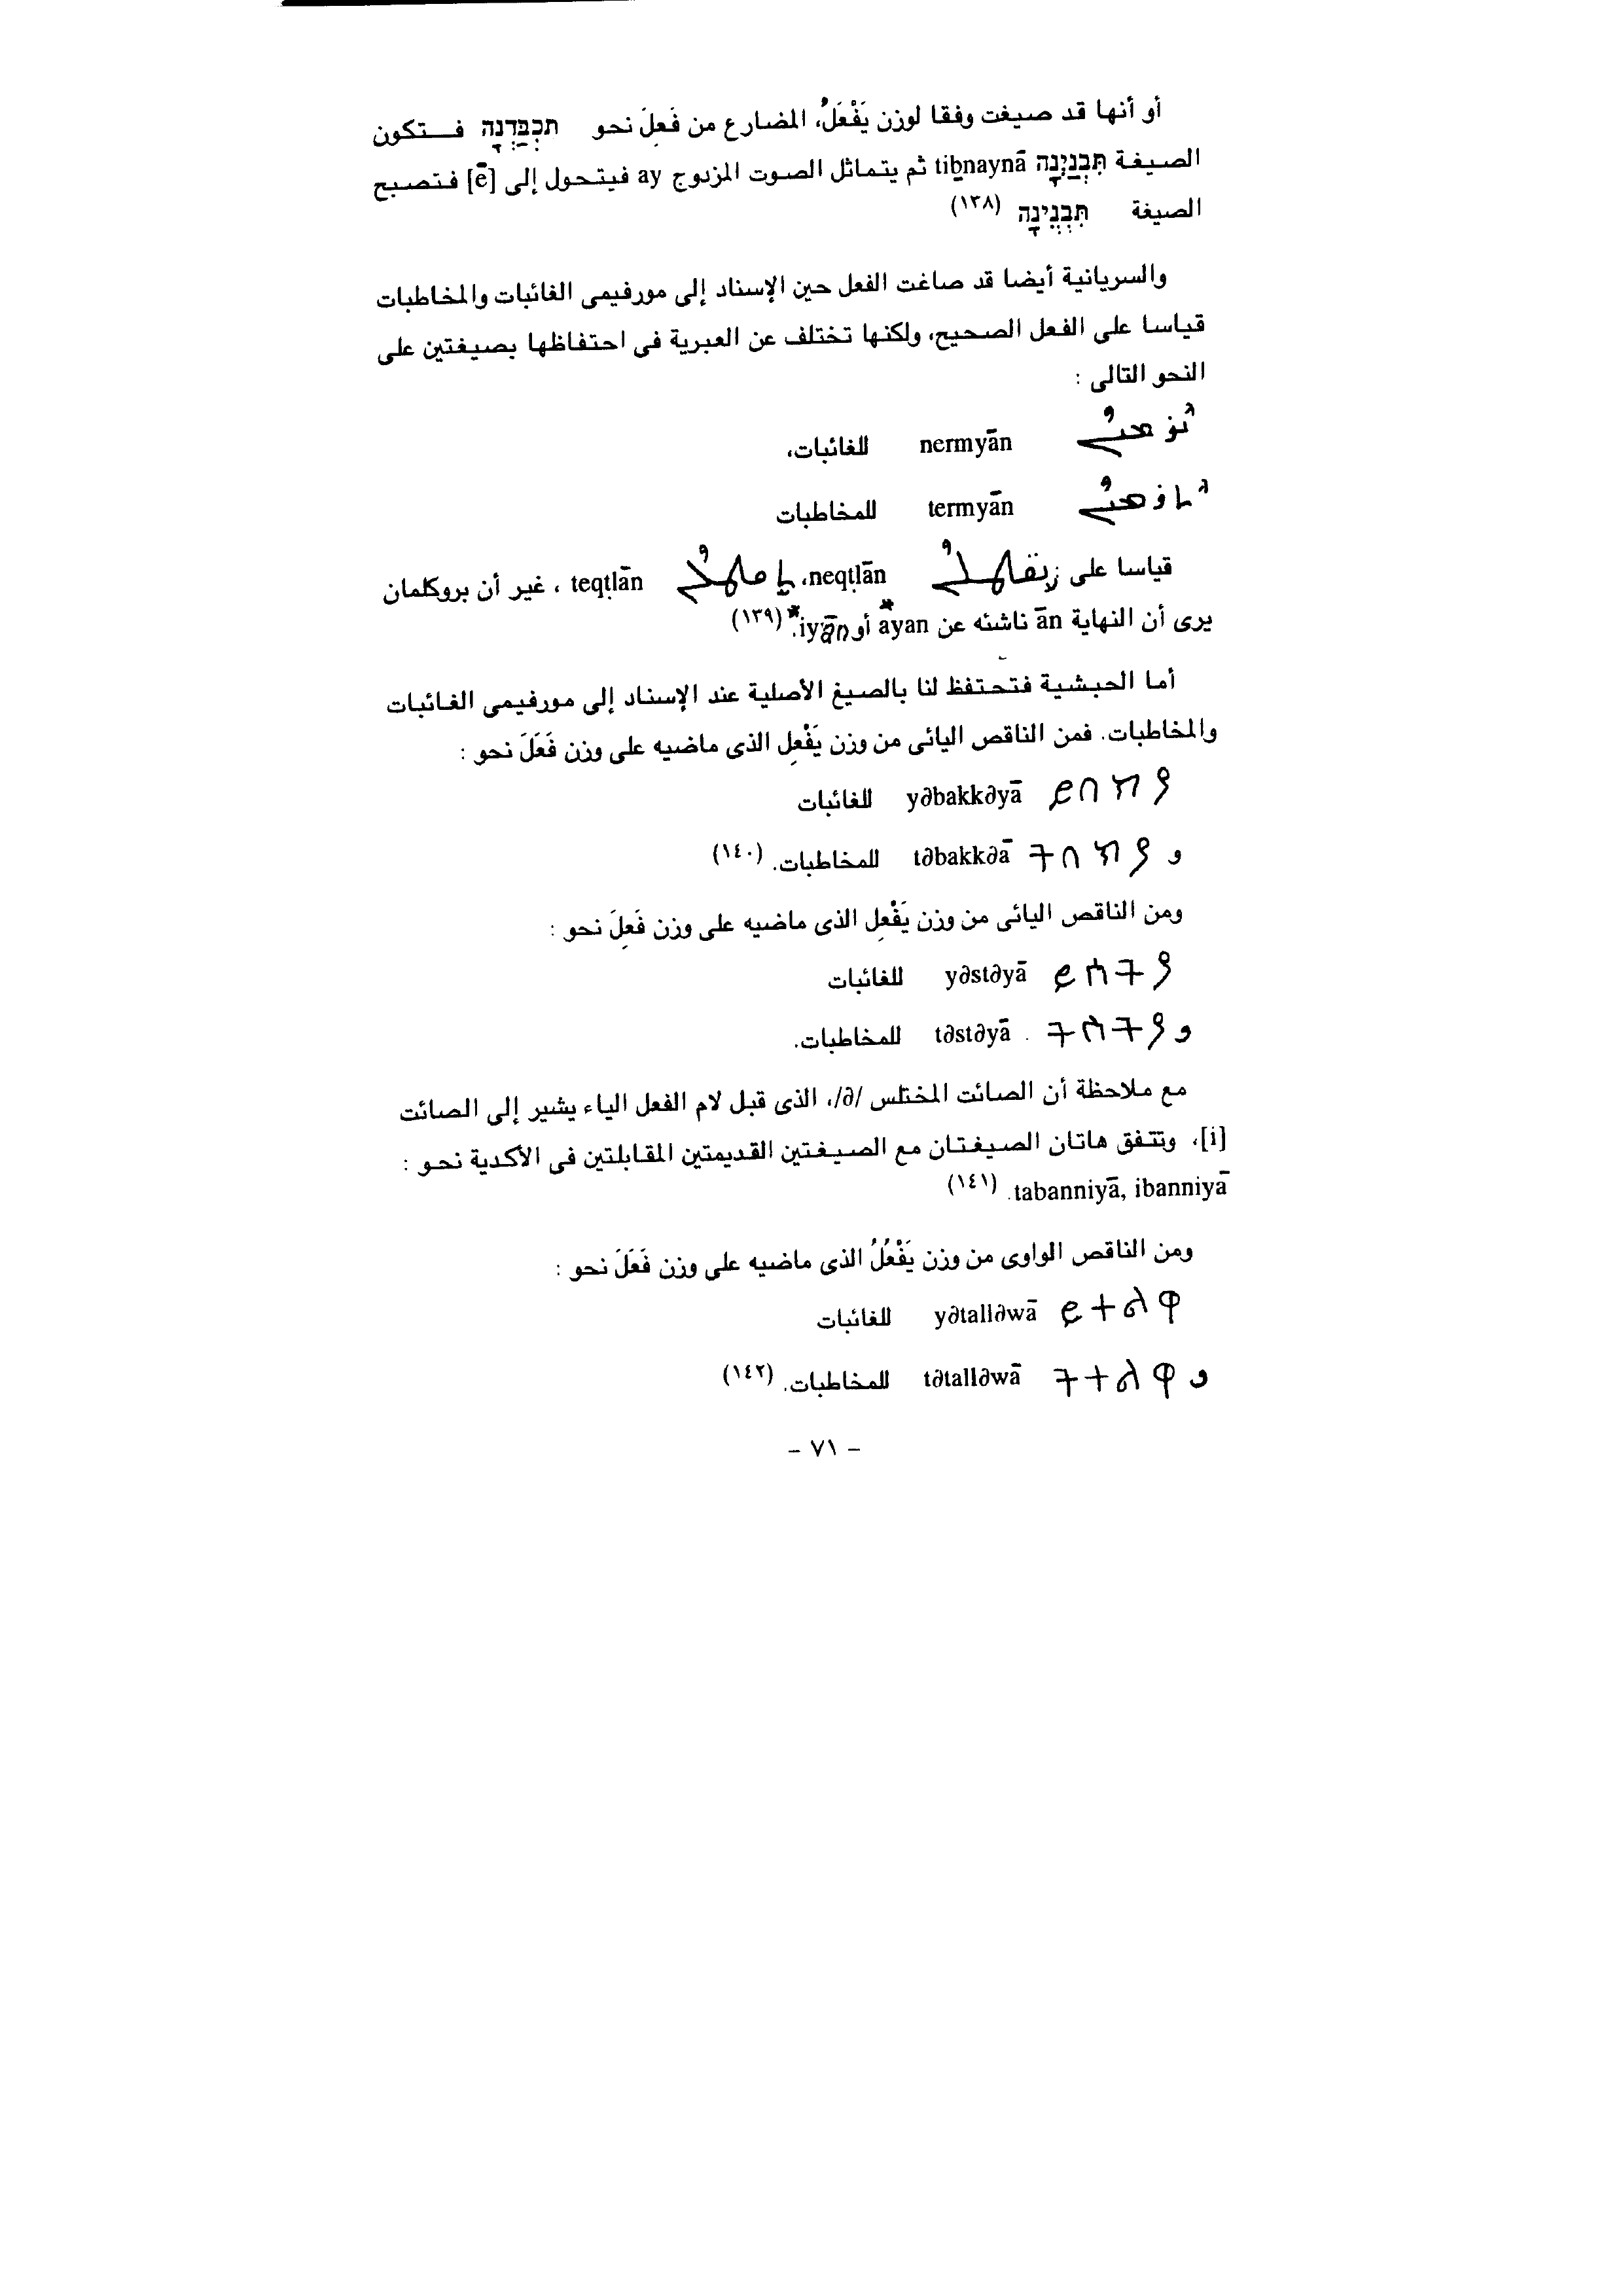 أو أنها قد صيغت وفقا لوزن يَفْعَلُ، المضارع من فَعِلَ نحو תִּכְבַּדְנָה فتكون
الصيغة תִּבְנַיְנָה tiḇnaynā ثم يتماثل الصوت المزدوج ay فيتحول إلى [ē] فتصبح
الصيغة תִּבְנֶינָה (١٣٨)
والسريانية أيضا قد صاغت الفعل حين الإسناد إلى مورفيمى الغائبات والمخاطبات
قياسا على الفعل الصحيح، ولكنها تختلف عن العبرية فى احتفاظها بصيغتين على
النحو التالى :
nermyān للغائبات،
termyān للمخاطبات
قياسا على neqṭlān، teqṭlān ، غير أن بروكلمان
يرى أن النهاية ān ناشئه عن *ayan أو *iyān. (١٣٩)
أما الحبشية فتحتفظ لنا بالصيغ الأصلية عند الإسناد إلى مورفيمى الغائبات
والمخاطبات. فمن الناقص اليائى من وزن يَفْعِل الذى ماضيه على وزن فَعَلَ نحو :
y∂bakk∂yā للغائبات
و t∂bakk∂ā للمخاطبات. (١٤٠)
ومن الناقص اليائى من وزن يَفْعِل الذى ماضيه على وزن فَعِلَ نحو :
y∂st∂yā للغائبات
و t∂st∂yā للمخاطبات.
مع ملاحظة أن الصائت المختلس /∂/، الذى قبل لام الفعل الياء يشير إلى الصائت
[i]، وتتفق هاتان الصيغتان مع الصيغتين القديمتين المقابلتين فى الأكدية نحو :
tabanniyā, ibanniyā. (١٤١)
ومن الناقص الواوى من وزن يَفْعُلُ الذى ماضيه على وزن فَعَلَ نحو :
y∂tall∂wā للغائبات
و t∂tall∂wā للمخاطبات. (١٤٢)
– ٧١ –